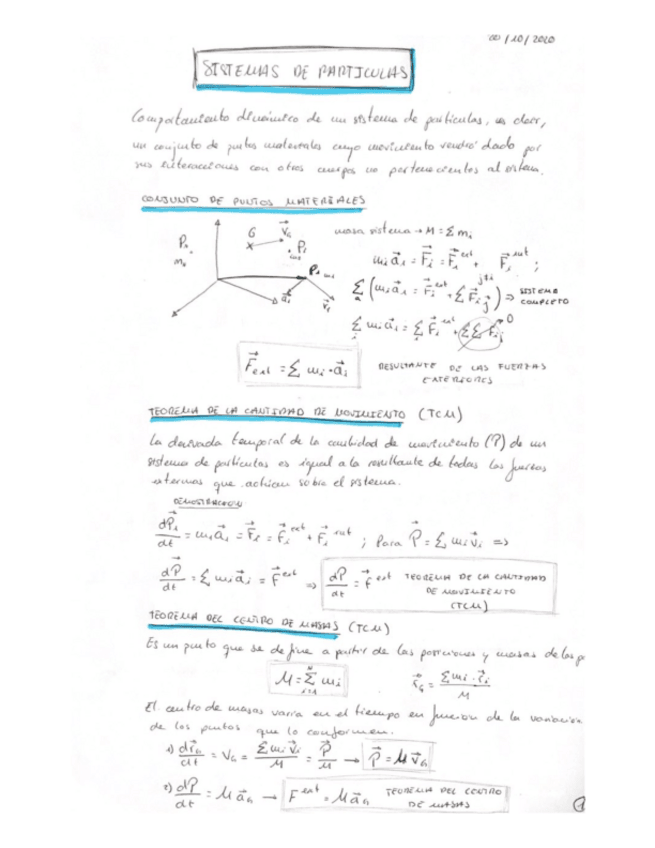 /10/2020
SISTEMAS DE PARTICULAS
Comportamiento dinámico de un sistema de partículas, es decir,
un conjunto de puntos materiales cuyo movimiento vendrá dado por
sus interacciones con otros cuerpos no pertenecientes al sistema.
CONJUNTO DE PUNTOS MATERIALES
masa sistema → M = Σ mi
G V⃗G Pi
mi a⃗i = F⃗i = F⃗i ext + F⃗i int ;
Σ (mi a⃗i = F⃗i ext + Σ F⃗ij) ⇒ SISTEMA COMPLETO
j≠i
a⃗i v⃗i
Σ mi a⃗i = Σ F⃗i ext + ΣΣ F⃗ij 0
F⃗ext = Σ mi · a⃗i RESULTANTE DE LAS FUERZAS
EXTERIORES
TEOREMA DE LA CANTIDAD DE MOVIMIENTO (TCM)
La derivada temporal de la cantidad de movimiento (P) de un
sistema de partículas es igual a la resultante de todas las fuerzas
externas que actúan sobre el sistema.
DEMOSTRACION
dP⃗i/dt = mi a⃗i = F⃗i = F⃗i ext + F⃗i int ; Para P⃗ = Σ mi v⃗i ⇒
dP⃗/dt = Σ mi a⃗i = F⃗ ext ⇒ dP⃗/dt = F⃗ ext TEOREMA DE LA CANTIDAD
DE MOVIMIENTO
(TCM)
TEOREMA DEL CENTRO DE MASAS (TCM)
Es un punto que se define a partir de las posiciones y masas de los p
M = Σ mi r⃗G = Σ mi · r⃗i / M
N
i=1
El centro de masas varía en el tiempo en función de la variación
de los puntos que lo conforman.
1) dr⃗G/dt = VG = Σ mi v⃗i / M = P⃗/M → P⃗ = M v⃗G
2) dP⃗/dt = M a⃗G → F ext = M a⃗G TEOREMA DEL CENTRO
DE MASAS
1